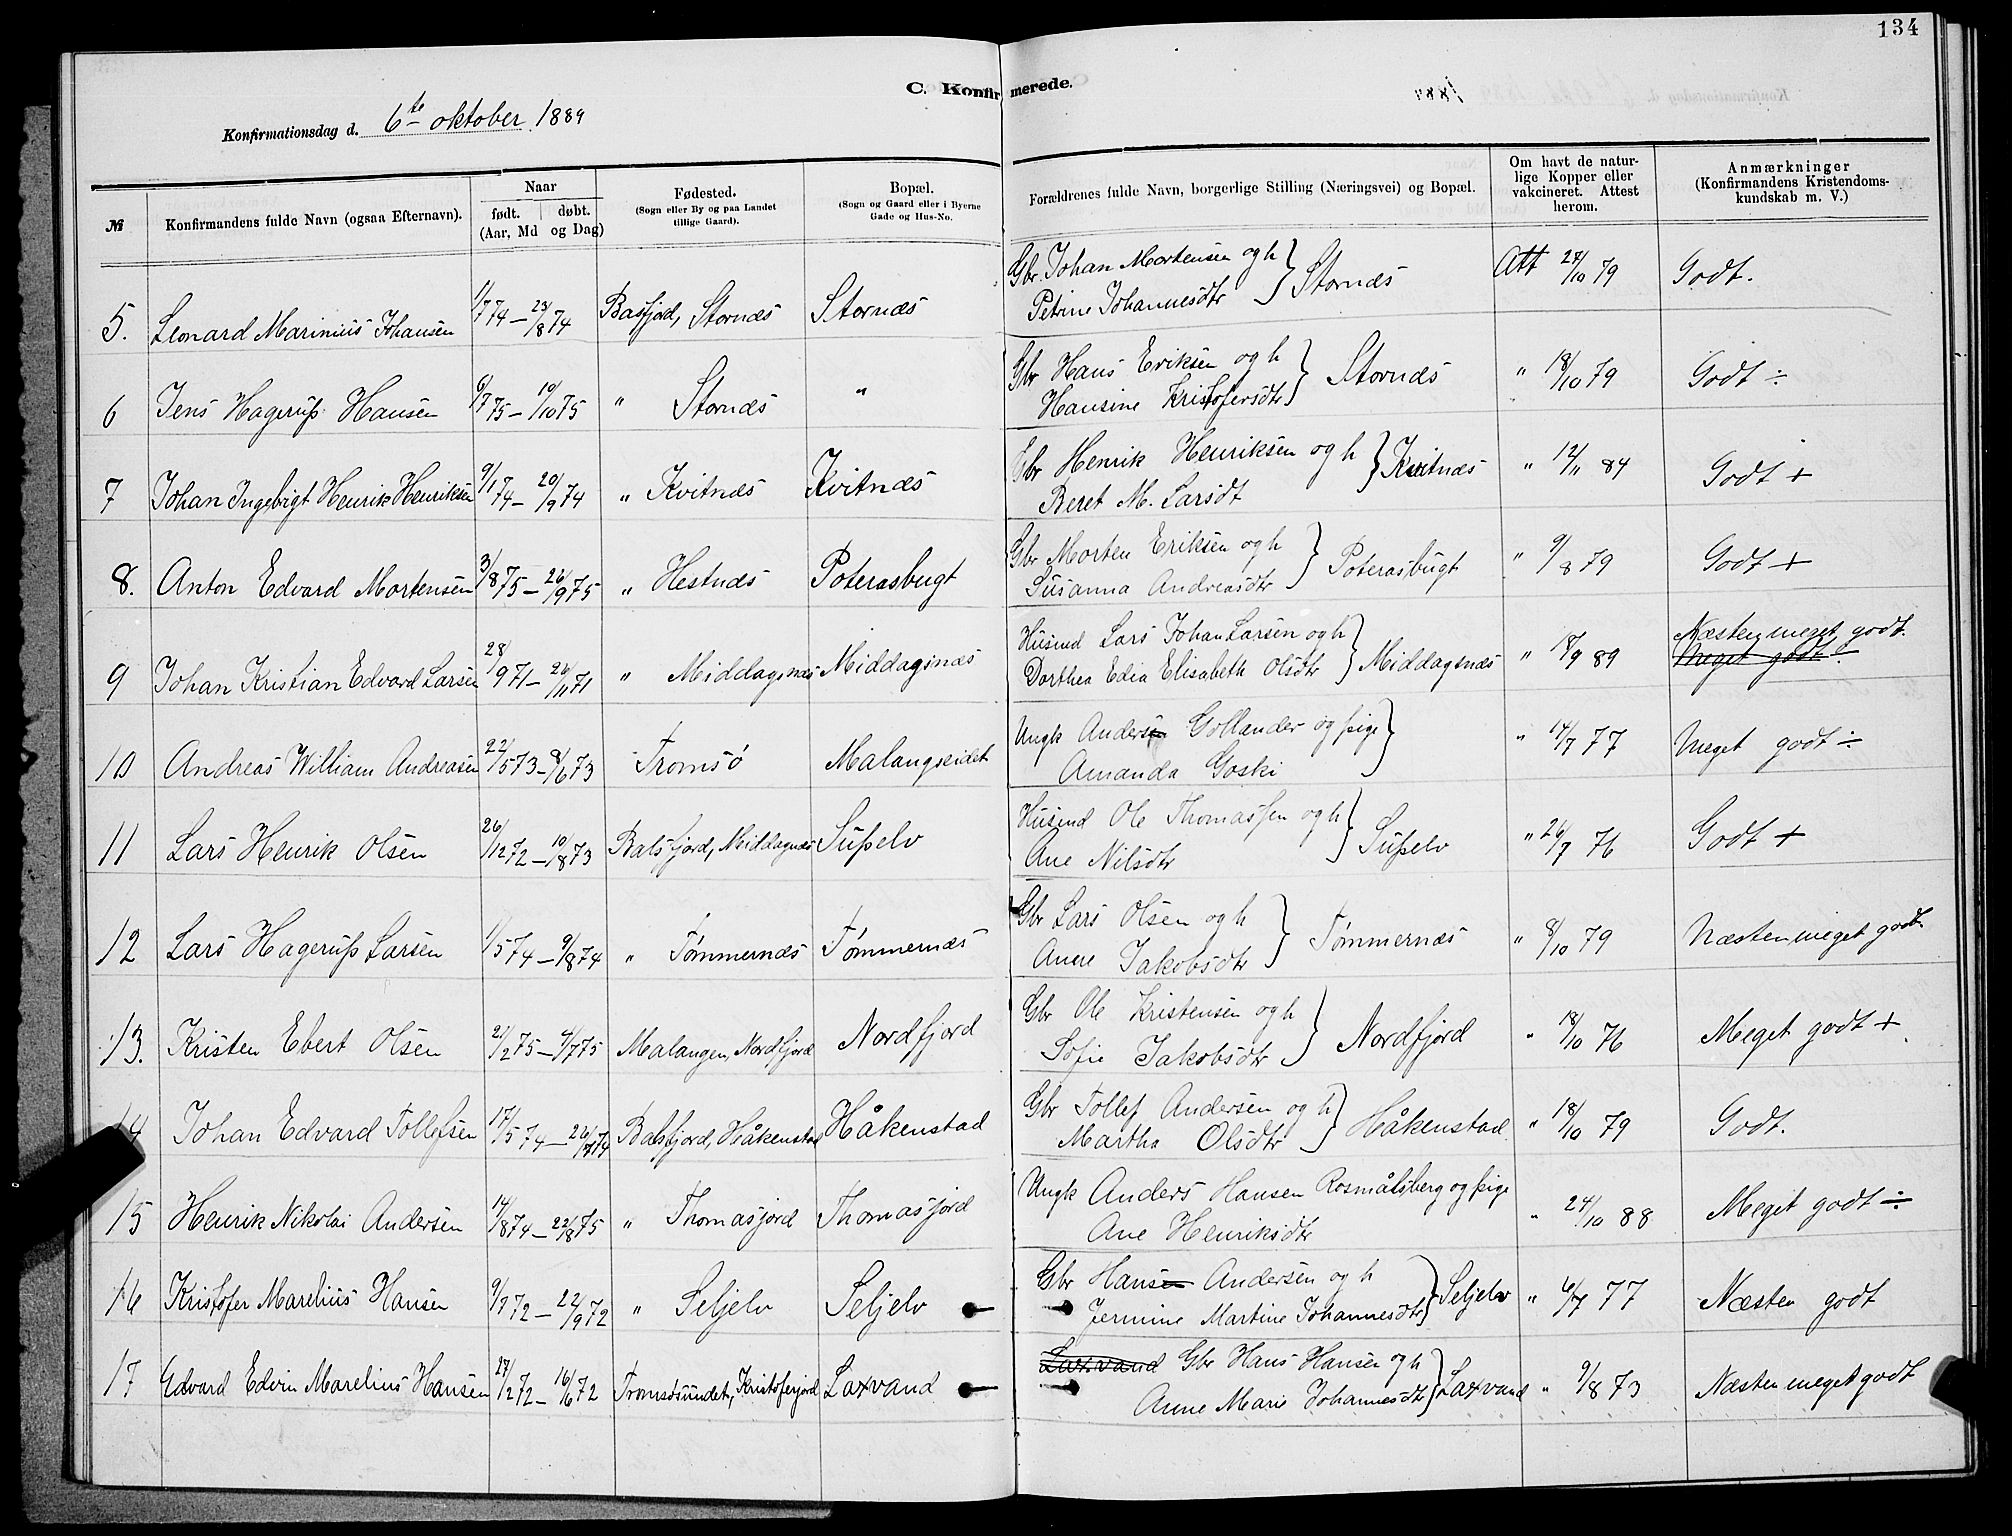 134
C. Konfirmerede.
Konfirmationsdag d. 6te oktober 1889
№ Konfirmandens fulde Navn (ogsaa Efternavn). Naar født. døbt. (Aar, Md og Dag) Fødested. (Sogn eller By og paa Landet tillige Gaard). Bopæl. (Sogn og Gaard eller i Byerne Gade og Hus-No. Forældrenes fulde Navn, borgerlige Stilling (Næringsvei) og Bopæl. Om havt de naturlige Kopper eller vakcineret. Attest herom. Anmærkninger (Konfirmandens Kristendomskundskab m. V.)
5. Leonard Marinius Johansen 1/7 74 – 23/8 74 Balsfjord, Stornæs Stornæs Gbr. Johan Mortensen og h } Stornæs Att 24/10 79 Godt.
Petrine Johannesdtr
6 Jens Hagerup Hansen 6/7 75 – 10/10 75 " Stornæs " Gbr Hans Eriksen og h } Stornæs " 18/10 79 Godt ÷
Hansine Kristofersdtr
7 Johan Ingebrigt Henrik Henriksen 9/1 74 – 20/9 74 " Kvitnæs Kvitnæs Gbr Henrik Henriksen og h } Kvitnæs " 12/11 84 Godt +
Beret M. Larsdt
8. Anton Edvard Mortensen 3/8 75 – 26/9 75 " Hestnæs Poterasbugt Gbr Morten Eriksen og h } Poterasbugt " 9/8 79 Godt +
Susanna Andreasdtr
9 Johan Kristian Edvard Larsen 28/9 71 – 26/11 71 " Middagsnæs Middagsnæs Husmd Lars Johan Larsen og h } Middagsnæs " 18/9 89 Næsten meget godt.
Dorthea Edia Elisabeth Olsdtr Meget godt ÷
10 Andreas William Andreasen 22/5 73 – 8/6 73 Tromsø Malangseidet Ungk Anders Gollander og pige } " 14/7 77 Meget godt ÷
Amanda Goski
11 Lars Henrik Olsen 26/12 72 – 10/8 73 Balsfjord, Middagnæs Sußelv Husmd Ole Thomassen og h } Sußelv " 26/7 76 Godt +
Ane Nilsdtr
12 Lars Hagerup Larsen 1/5 74 – 9/8 74 " Tømmernæs Tømmernæs Gbr Lars Olsen og h } Tømmernæs " 8/10 79 Næsten meget godt
Anne Jakobsdtr
13. Kristen Ebert Olsen 21/2 75 – 4/7 75 Malangen, Nordfjord Nordfjord Gbr Ole Kristensen og h } Nordfjord " 18/10 76 Meget godt +
Sofie Jakobsdtr
14 Johan Edvard Tollefsen 17/5 74 – 26/7 74 Balsfjord, Håkenstad Håkenstad Gbr Tollef Andersen og h } Håkenstad " 18/10 79 Godt.
Martha Olsdtr
15 Henrik Nikolai Andersen 14/8 74 – 22/8 75 " Thomasjord Thomasjord Ungk Anders Hansen Rosmålsberg og pige " 24/10 88 Meget godt ÷
Ane Henriksdtr
16 Kristofer Marelius Hansen 9/7 72 – 22/9 72 " Seljelv Seljelv Gbr Hans Andersen og h } Seljelv " 6/7 77 Næsten godt
Jermine Martine Johannesdtr
17 Edvard Edvin Marelius Hansen 27/12 72 – 16/6 72 Tromsøsundet, Kristoferjord Laxvand Laxvand Gbr Hans Hansen og h } Laxvand " 9/8 73 Næsten meget godt
Anne Marie Johannesdtr